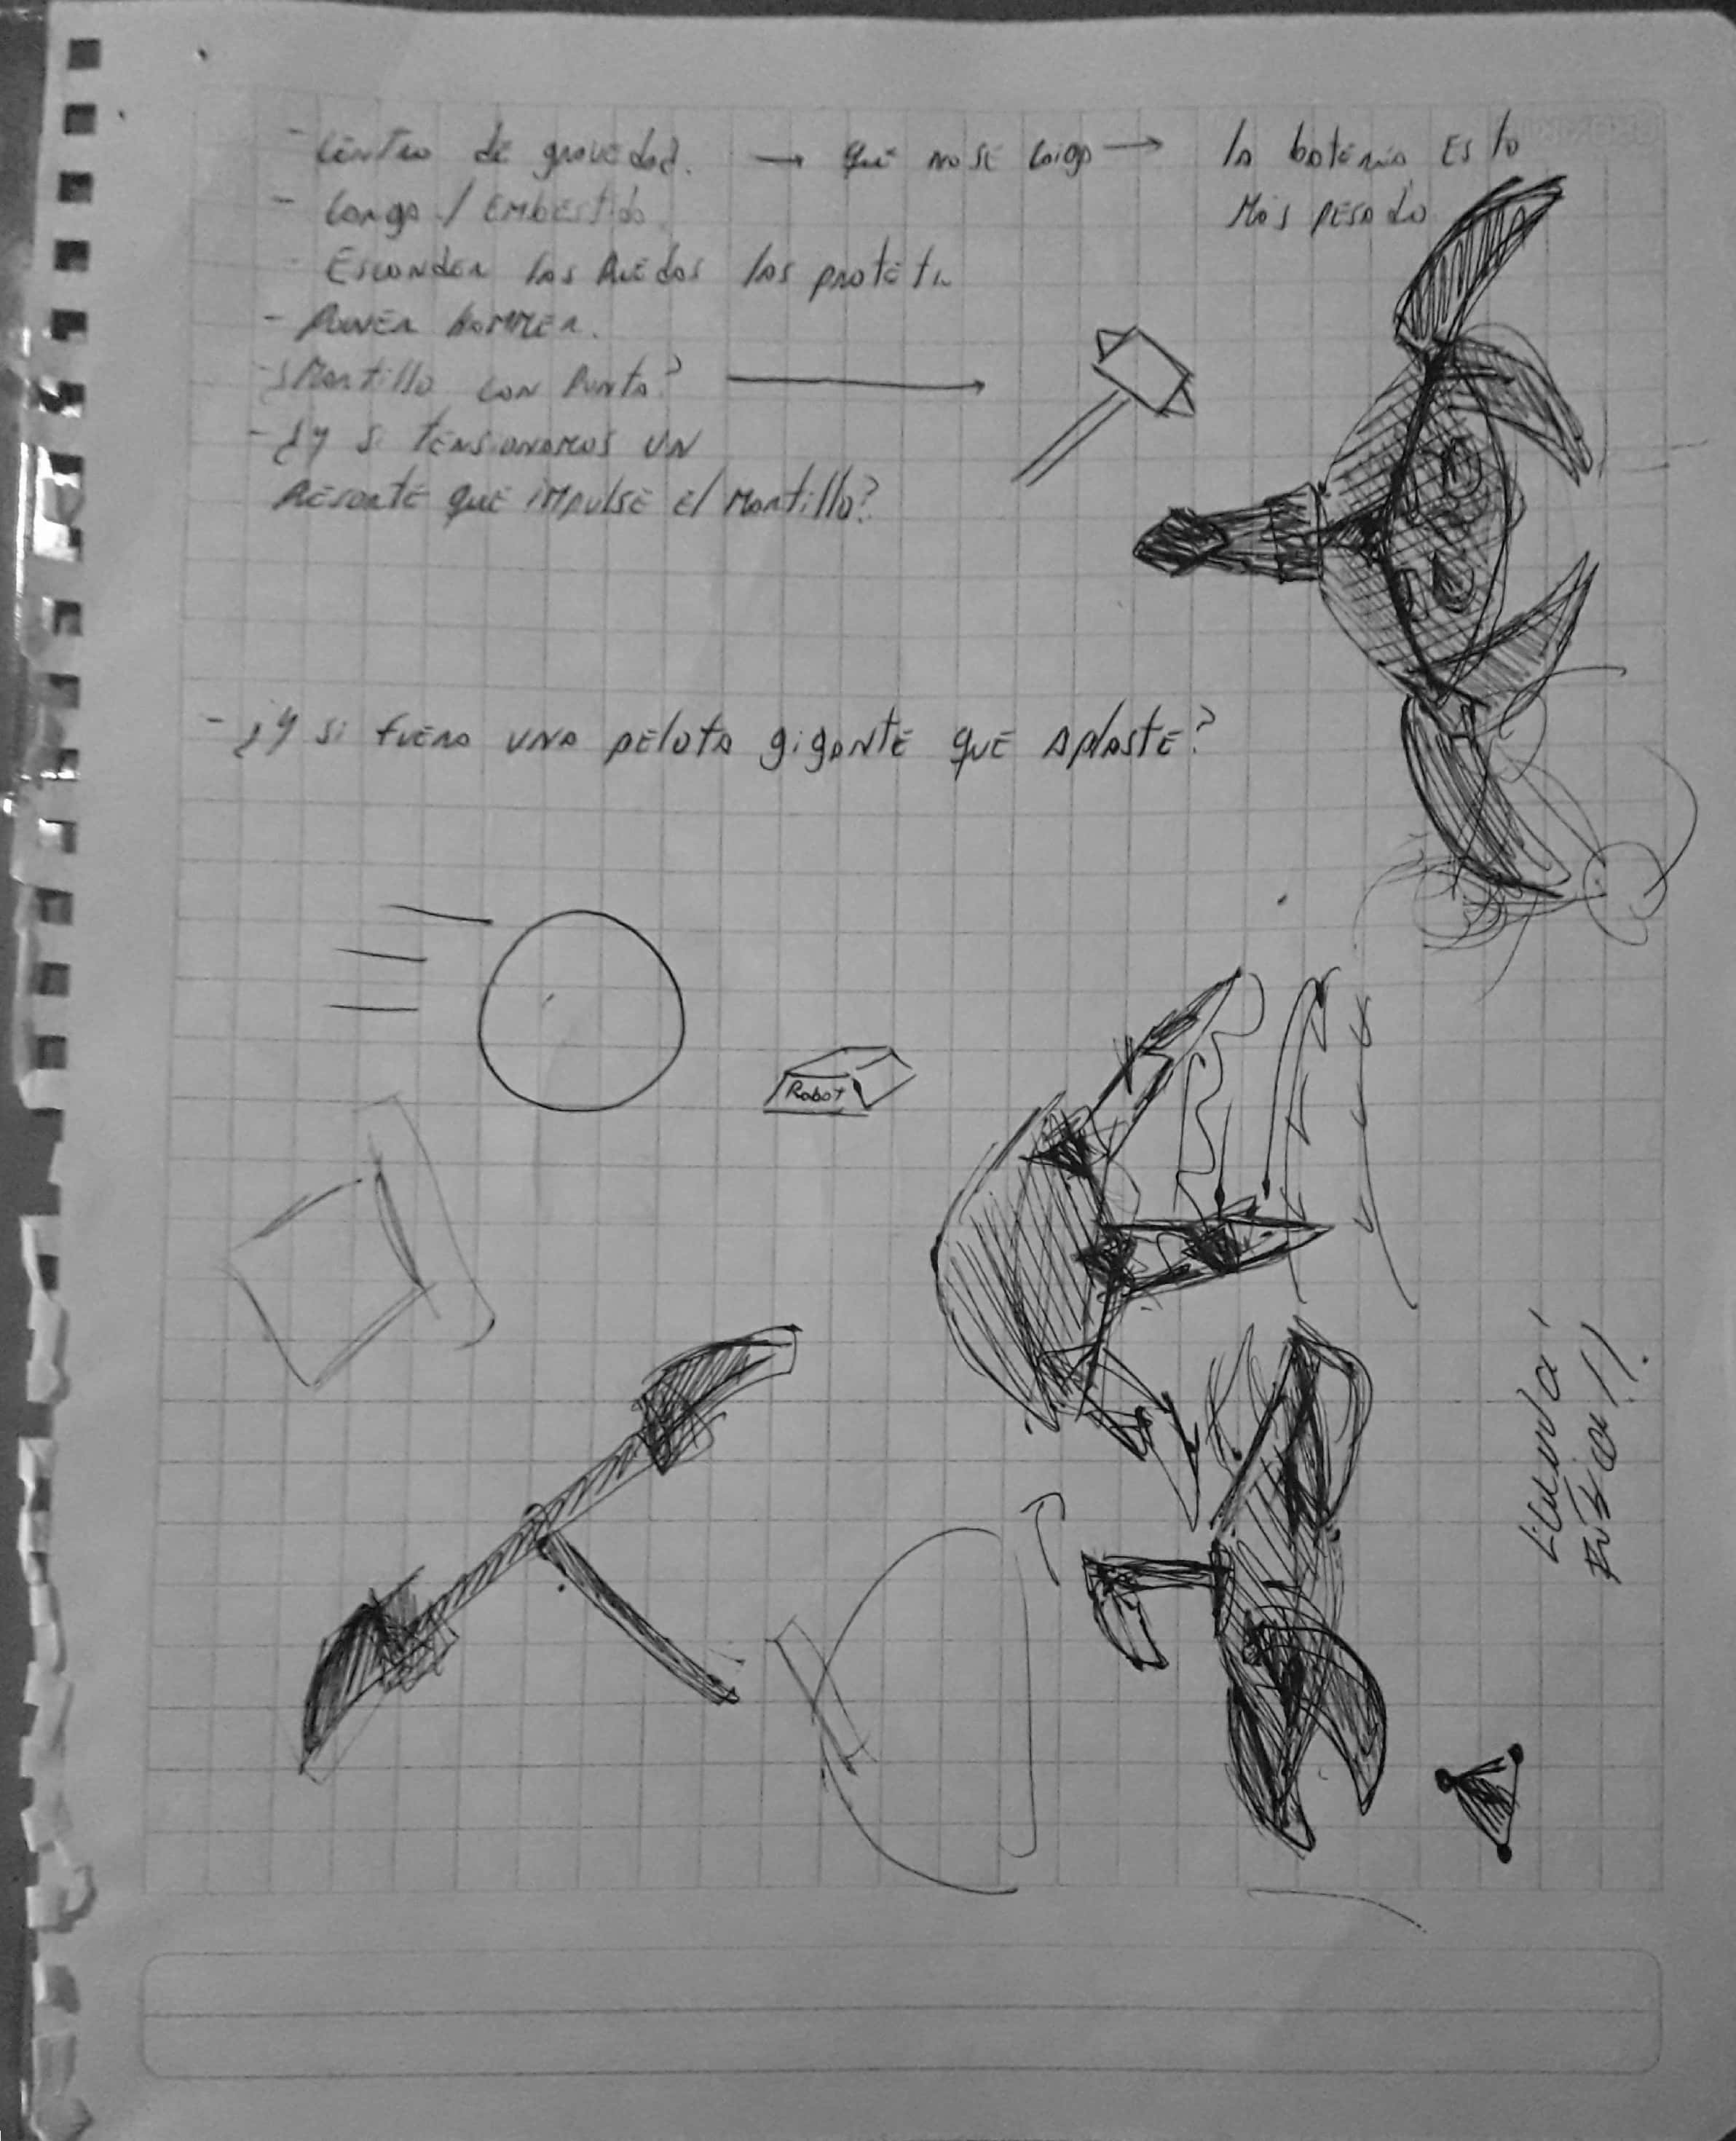 - Centro de gravedad. → que no se caiga → la bateria es lo
más pesado
- Carga / Embestida.
- Esconder las Ruedas las protet..
- Power Hammer.
- ¿Martillo con Punta? →
- ¿Y si tensionamos un
Resorte que impulse el martillo?
- ¿Y si fuera una pelota gigante que aplaste?
Robot